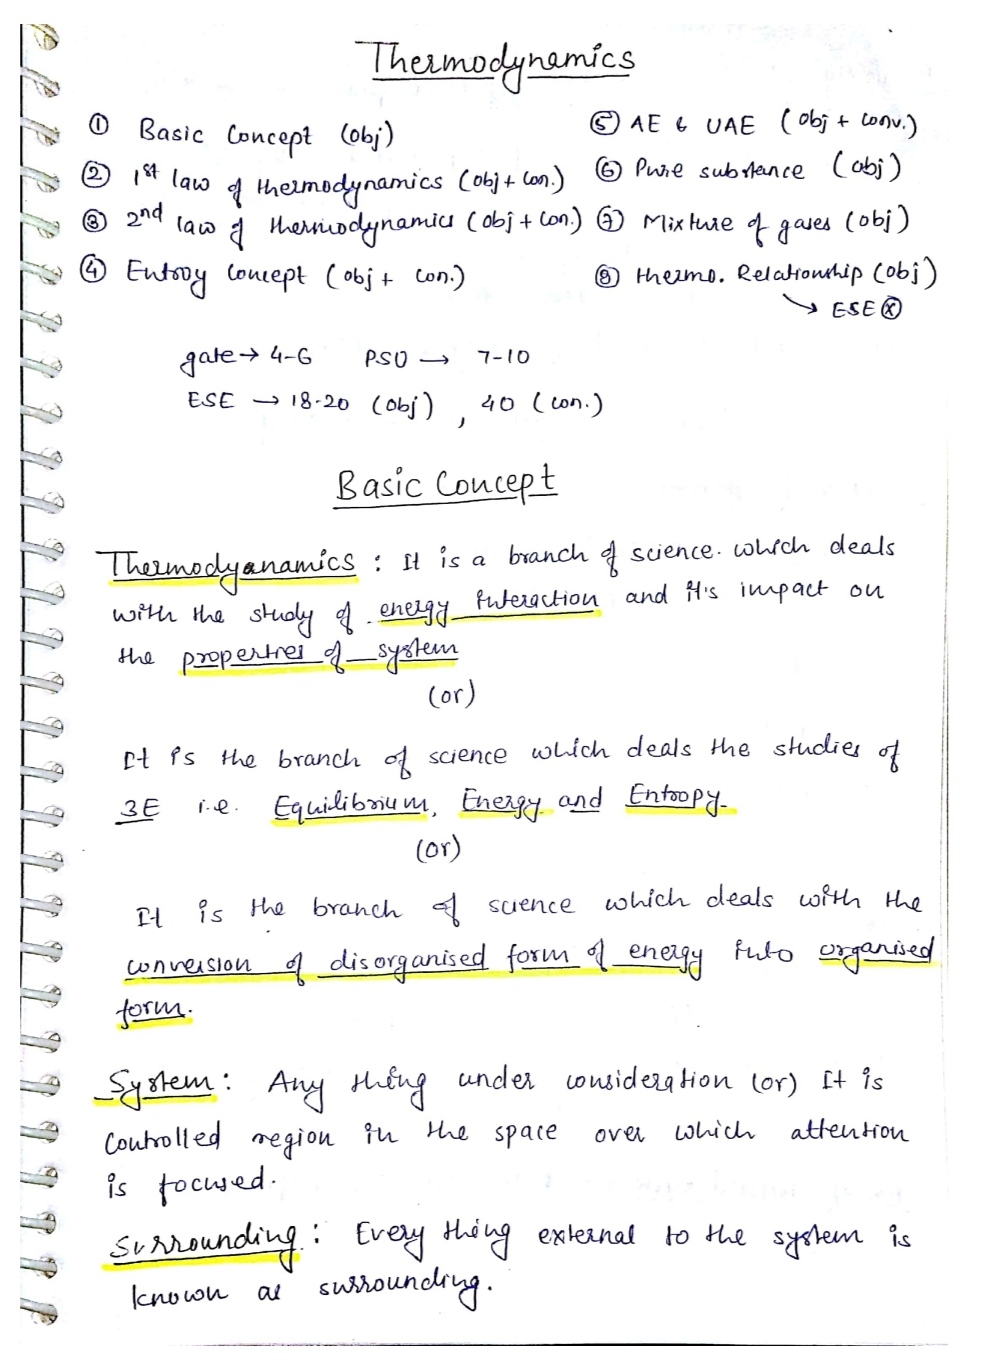 Thermodynamics
① Basic Concept (obj)
② 1st law of thermodynamics (obj + con.)
③ 2nd law of thermodynamics (obj + con.)
④ Entropy concept (obj + con.)
⑤ AE & UAE (obj + conv.)
⑥ Pure substance (obj)
⑦ Mixture of gases (obj)
⑧ thermo. Relationship (obj)
→ ESE ⓧ
gate → 4-6 PSU → 7-10
ESE → 18-20 (obj), 40 (con.)
Basic Concept
Thermodyanamics : It is a branch of science. which deals
with the study of energy interaction and it's impact on
the properties of system
(or)
It is the branch of science which deals the studies of
3E i.e. Equilibrium, Energy and Entropy
(or)
It is the branch of science which deals with the
conversion of disorganised form of energy into organised
form.
System : Any thing under consideration (or) It is
Controlled region in the space over which attention
is focused.
Surrounding : Every thing external to the system is
known as surrounding.